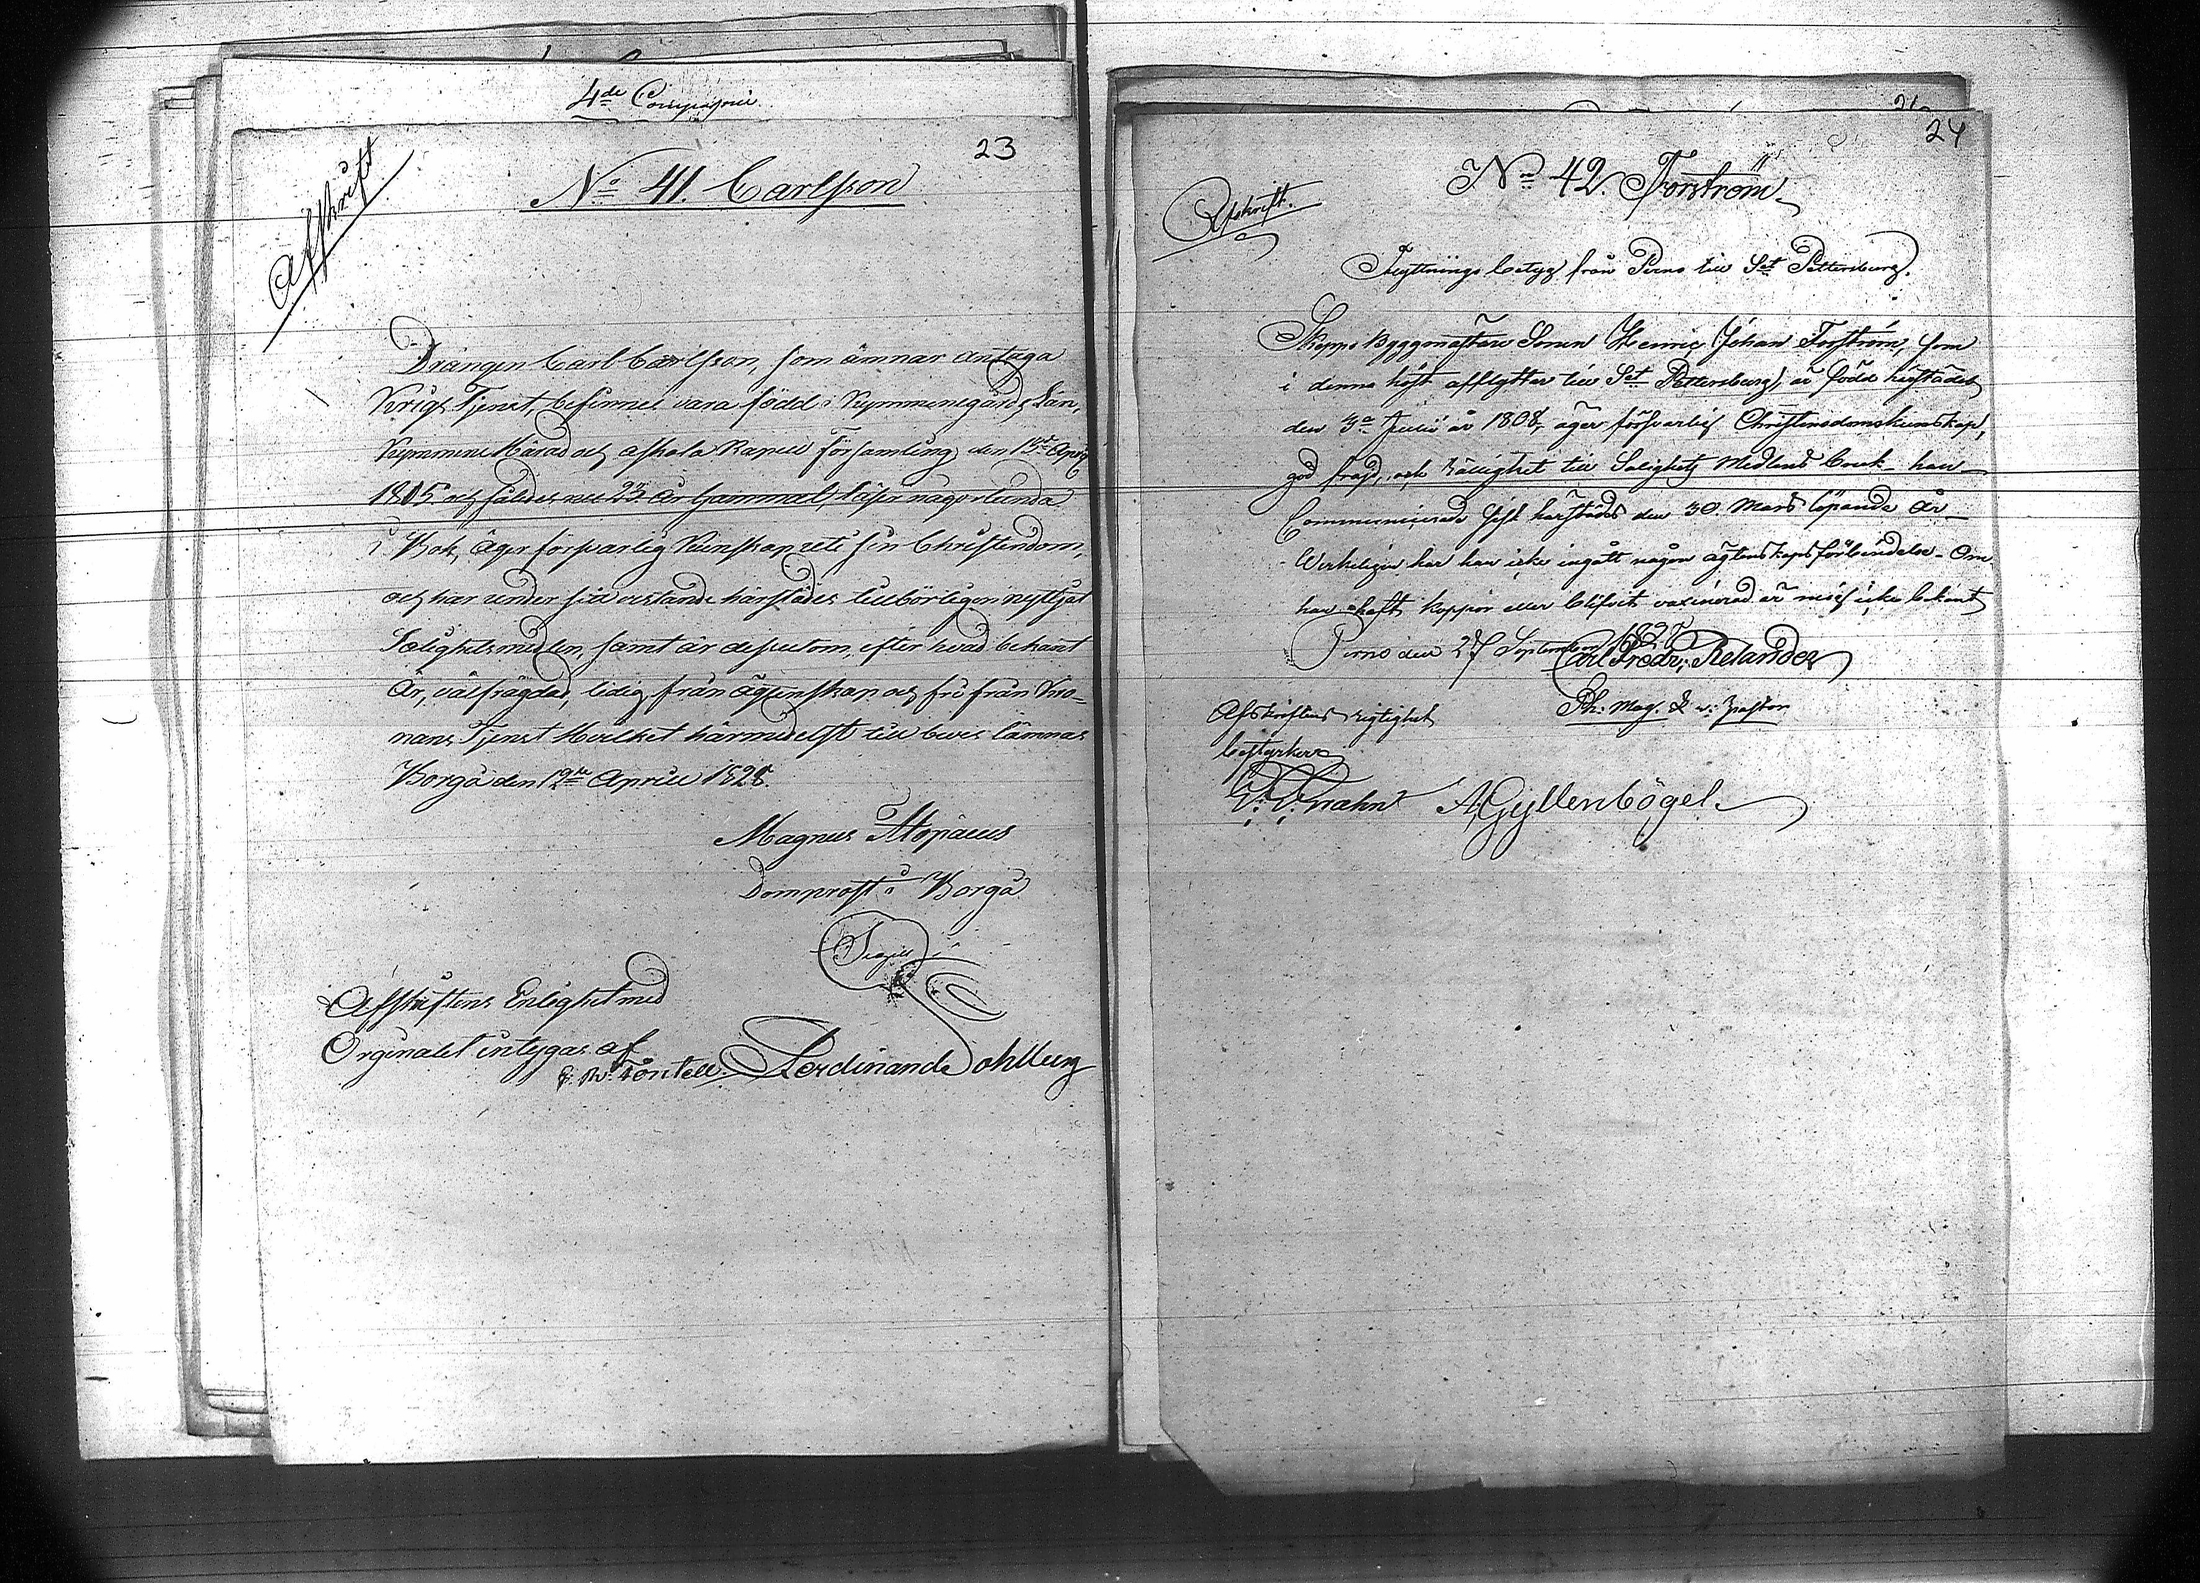 4de Compagnie
23
Afskrift
No 41. Carlsson
Drängen Carl Carlsson, som ämnar antaga
Krigs Tjenst, befinnes vara född i Kymmenegårds Län,
Kymmene Härad och Askola Kapell Församling den 13de April
1805 och således nu 23 år gammal, läser någorlunda
i Bok, äger försvarlig Kunskap uti sin Christendom,
och har under sitt vistande härstädes tillbörligen nyttjat
Salighetsmedlen, samt är dessutom, efter hvad bekant
är, välfrägdad, ledig från Ägtenskap och fri från Kro-
nans Tjenst Hvilket härmedelst till bevis lämnas
Borgå den 12te Aprill 1828.
Magnus Alopæus
Domprost i Borgå
Sigill
Afskriftens Enlighet med
Orginalet intygas af
Töntell Ferdinand Sohlberg
24
No 42. Forström
Afskrift.
Flyttnings betyg från Perno till Sct Pettersburg.
Skepps Byggmästare Sonen Henric Johan Forström, som
i denne höst afflyttar till Sct Pettersburg, är född härstädes
den 3de Junii år 1808, äger försvarlig Christendomskunskap,
god frägd, och rättighet till Salighets Medlens bruk - han
Communicerade sist härstädes den 30 Mars löpande år
Werkeligen har han icke ingått någon ägtenskapsförbindelse - Om
han haft koppor eller blifvit vaxinerad är mig icke bekant
Perno den 27 September 1827
Carl Fredr: Relander
Ph: Mag. & v: Pastor
Afskriftens rigtighet
bestyrker
Knahn A. Gyllenbögel.